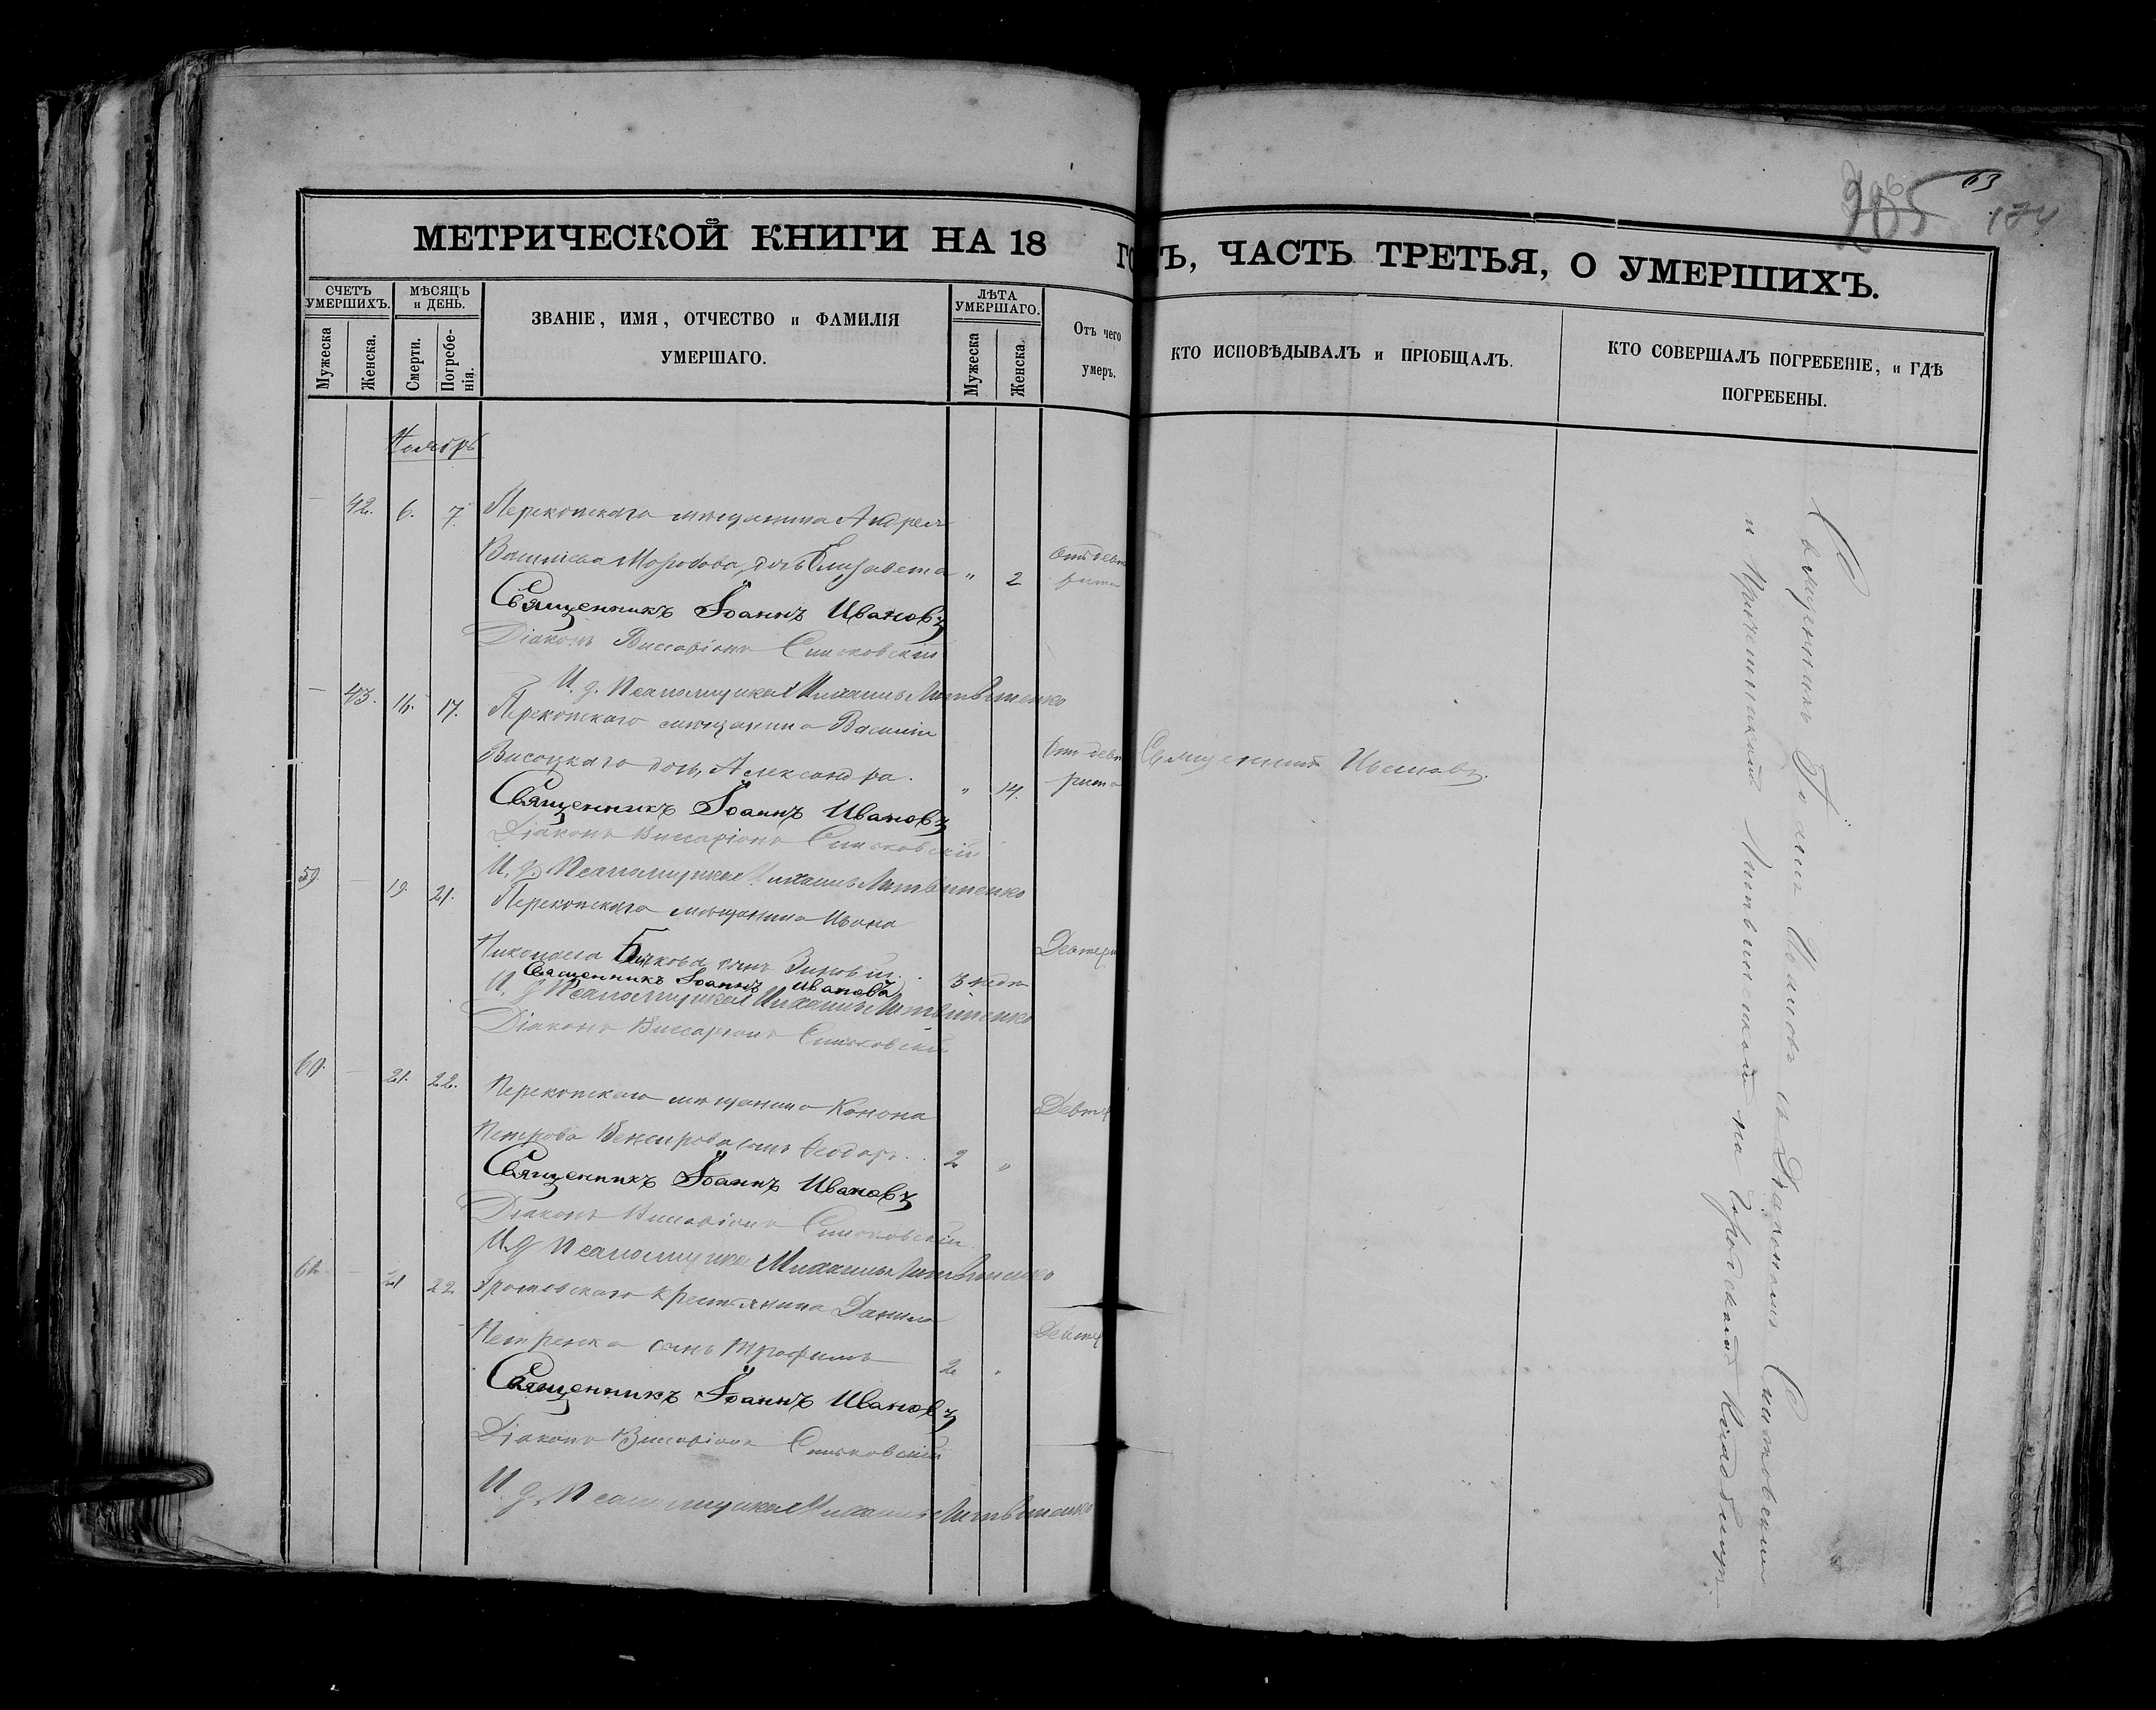 63
205
174
МЕТРИЧЕСКОЙ КНИГИ НА 18 ГОДЪ, ЧАСТЬ ТРЕТЬЯ, О УМЕРШИХЪ.
СЧЕТЪ УМЕРШИХЪ.
Мужеска
Женска.
МѢСЯЦЪ и ДЕНЬ.
Смерти.
Погребенія.
ЗВАНІЕ, ИМЯ, ОТЧЕСТВО и ФАМИЛІЯ
УМЕРШАГО.
ЛѢТА УМЕРШАГО.
Мужеска
Женска.
Отъ чего
умеръ.
КТО ИСПОВѢДЫВАЛЪ и ПРІОБЩАЛЪ.
КТО СОВЕРШАЛЪ ПОГРЕБЕНІЕ, и ГДѢ
ПОГРЕБЕНЫ.
Ноябрь
42. 6. 7. Перекопскаго мѣщанина Андрея
Васильева Морозова, дочь Елизавета " 2
Священникъ Іоаннъ Ивановъ
Діаконъ Виссаріонъ
И. д. Псаломщика Михаилъ Литвиненко
43. 16. 17. Перекопскаго мѣщанина Василія
Высоцкаго дочь, Александра. " 14. Священникъ Ивановъ.
Священникъ Іоаннъ Ивановъ
Діаконъ Виссаріонъ
И. д. Псаломщика Михаилъ Литвиненко
59. 19. 21. Перекопскаго мѣщанина Ивана
Николаева сынъ Зиновій. 3 нед.
Священникъ Іоаннъ Ивановъ
И. д. Псаломщика Михаилъ Литвиненко
Діаконъ Виссаріонъ
60. 21. 22. Перекопскаго мѣщанина Конона
Петрова сынъ Ѳеодоръ. 2 "
Священникъ Іоаннъ Ивановъ
Діаконъ Виссаріонъ
И. д. Псаломщика Михаилъ Литвиненко
61. 21 22. крестьянина Данила
Петренка сынъ Трофимъ 2 "
Священникъ Іоаннъ Ивановъ
Діаконъ Виссаріонъ
И. д. Псаломщика Михаилъ Литвиненко
Священникъ Іоаннъ Ивановъ съ Діакономъ
и Литвиненкой на Городскомъ Кладбищѣ